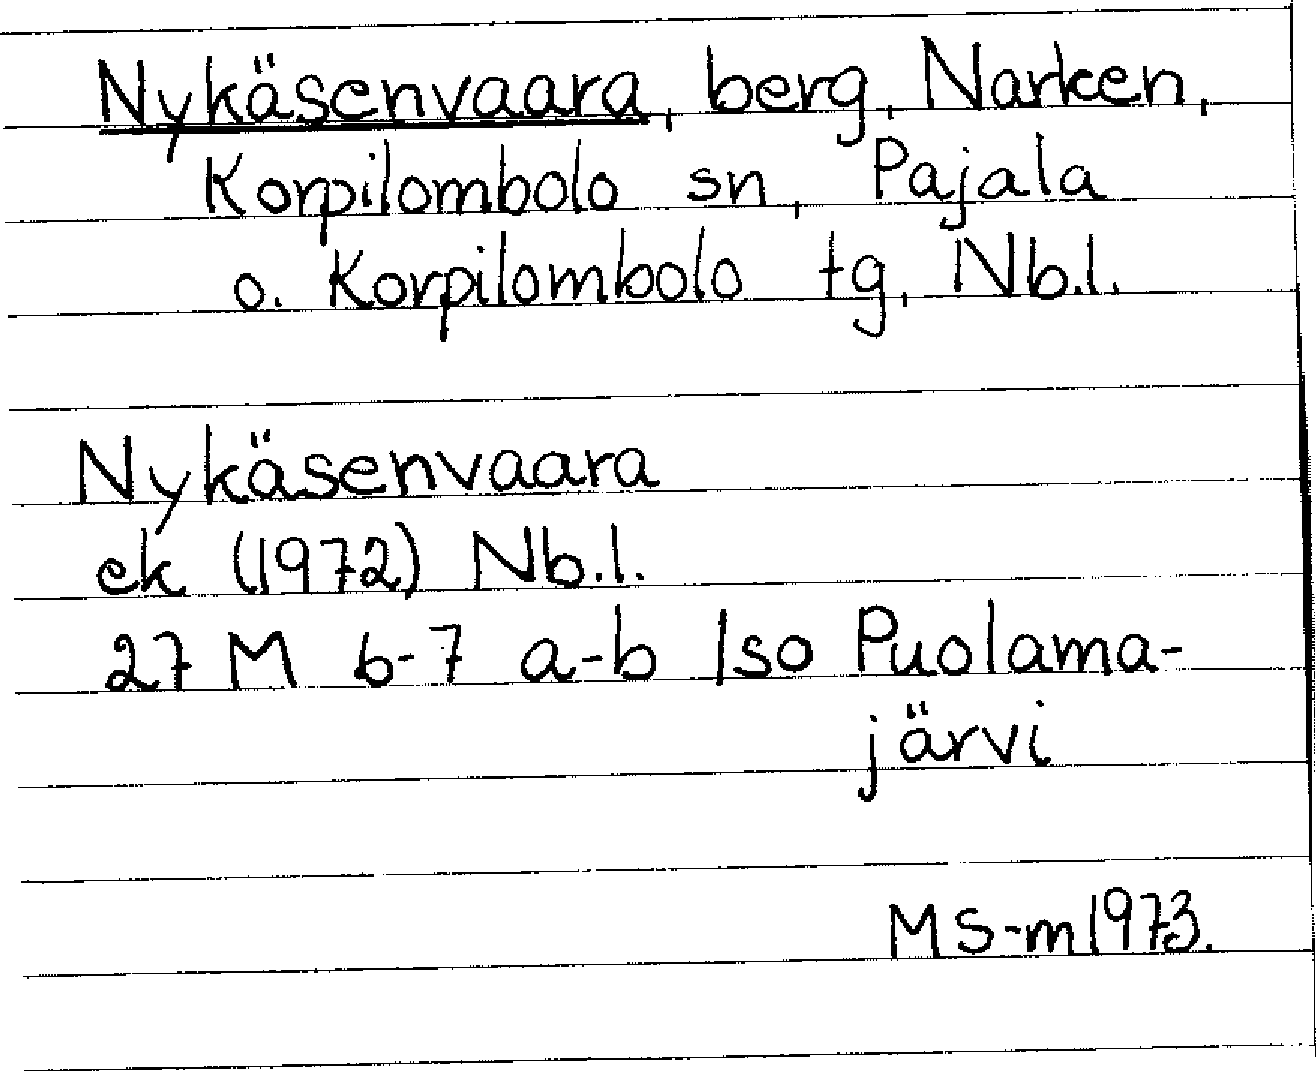 Nykäsenvaara, berg, Narken,
Korpilombolo sn, Pajala
o. Korpilombolo tg, Nb.l.
Nykäsenvaara
ek (1972) Nb.l.
27 M 6-7 a-b Iso Puolama-
järvi
MS-m 1973.